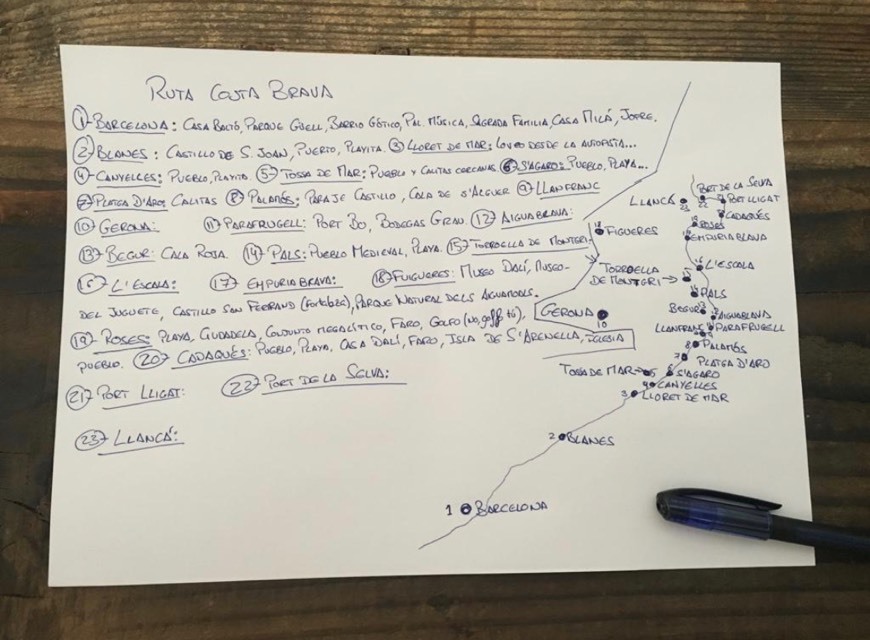 RUTA COSTA BRAVA
① BARCELONA: CASA BATLÓ, PARQUE GÜELL, BARRIO GÓTICO, PAL. MÚSICA, SAGRADA FAMILIA, CASA MILÁ, JOFRE.
② BLANES: CASTILLO DE S. JOAN, PUERTO, PLAYITA. ③ LLORET DE MAR: LO VEO DESDE LA AUTOPISTA...
④ CANYELLES: PUEBLO, PLAYITA ⑤ TOSSA DE MAR: PUEBLO Y CALITAS CERCANAS ⑥ S'AGARO: PUEBLO, PLAYA...
⑦ PLATGA D'ARO: CALITAS ⑧ PALAMÓS: PARAJE CASTILLO, CALA DE S'ALGUER ⑨ LLANFRANC
⑩ GERONA: ⑪ PARAFRUGELL: PORT BO, BODEGAS GRAU ⑫ AIGUABLAVA:
⑬ BEGUR: CALA ROJA. ⑭ PALS: PUEBLO MEDIEVAL, PLAYA. ⑮ TORROELLA DE MONTGRI:
⑯ L'ESCALA: ⑰ EMPURIABRAVA: ⑱ FUIGUERES: MUSEO DALÍ, MUSEO
DEL JUGUETE, CASTILLO SAN FERRAND (Fortaleza), PARQUE NATURAL DELS AIGUAMOLLS.
⑲ ROSES: PLAYA, CIUDADELA, CONJUNTO MEGALÍTICO, FARO, GOLFO
PUEBLO. ⑳ CADAQUÉS: PUEBLO, PLAYA, CASA DALÍ, FARO, ISLA DE S'ARENELLA, IGLESIA
21 PORT LLIGAT: 22 PORT DE LA SELVA:
23 LLANCÁ:
PORT DE LA SELVA
22
LLANCÁ 23
PORT LLIGAT
CADAQUÉS
ROSES
FIGUERES
EMPURIABLAVA
L'ESCALA
TORROELLA DE MONTGRI
PALS
BEGUR
AIGUABLAVA
GERONA 10
LLANFRANC
PARAFRUGELL
8 PALAMÓS
7 PLATGA D'ARO
TOSSA DE MAR 5
6 S'AGARO
4 CANYELLES
3 LLORET DE MAR
2 BLANES
1 BARCELONA